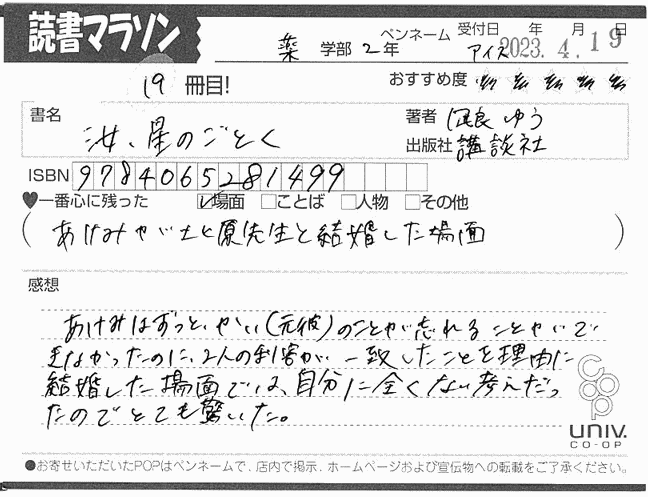 読書マラソン
薬 学部 2年 ペンネーム アイス 受付日 年 月 日 2023. 4. 19
19 冊目! おすすめ度
書名 汝、星のごとく
著者 凪良 ゆう
出版社 講談社
ISBN 9784065281499
♥一番心に残った ☑場面 □ことば □人物 □その他
(あけみが北原先生と結婚した場面)
感想
あけみはずっと、かい(元彼)のことが忘れることがで
きなかったのに、2人の利害が一致したことを理由に
結婚した場面では、自分に全くない考えだっ
たのでとても驚いた。
coop
UNIV.
CO-OP
●お寄せいただいたPOPはペンネームで、店内で掲示、ホームページおよび宣伝物への転載をご了承ください。